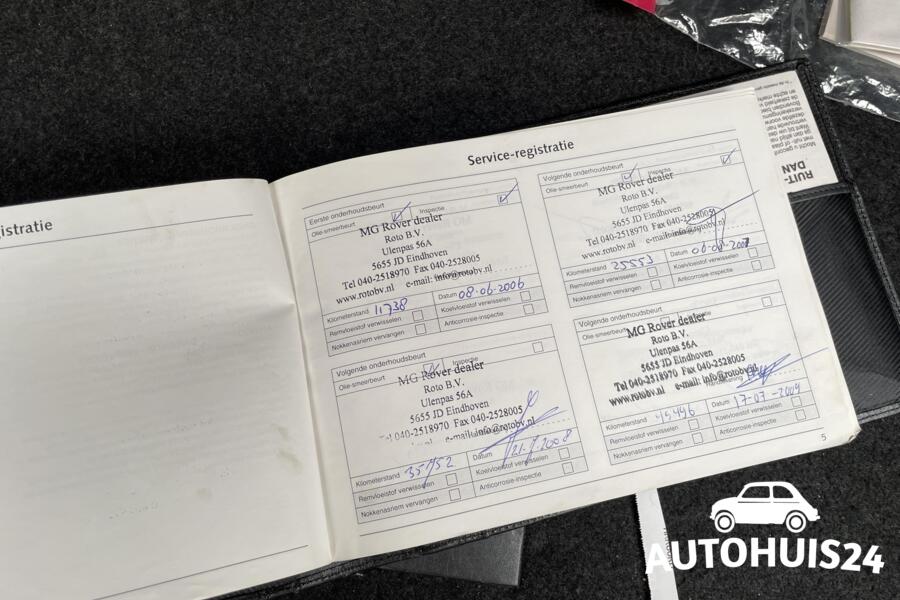 gistratie
Service-registratie
Eerste onderhoudsbeurt
Olie-smeerbeurt Inspectie
MG Rover dealer
Roto B.V.
Ulenpas 56A
5655 JD Eindhoven
Tel 040-2518970 Fax 040-2528005
www.rotobv.nl e-mail: info@rotobv.nl
Kilometerstand 11738 Datum 08-06-2006
Remvloeistof verwisselen Koelvloeistof verwisselen
Nokkenasriem vervangen Anticorrosie-inspectie
Volgende onderhoudsbeurt
Olie-smeerbeurt Inspectie
MG Rover dealer
Roto B.V.
Ulenpas 56A
5655 JD Eindhoven
Tel 040-2518970 Fax 040-2528005
e-mail: info@rotobv.nl
Kilometerstand 35152 Datum 21-7-2008
Remvloeistof verwisselen Koelvloeistof verwisselen
Nokkenasriem vervangen Anticorrosie-inspectie
Volgende onderhoudsbeurt
Olie-smeerbeurt
MG Rover dealer
Roto B.V.
Ulenpas 56A
5655 JD Eindhoven
Tel 040-2518970 Fax 040-2528005
www.rotobv.nl e-mail: info@rotobv.nl
Kilometerstand 25553 Datum 2007
Remvloeistof verwisselen Koelvloeistof verwisselen
Nokkenasriem vervangen Anticorrosie-inspectie
Volgende onderhoudsbeurt
Olie-smeerbeurt
MG Rover dealer
Roto B.V.
Ulenpas 56A
5655 JD Eindhoven
Tel 040-2518970 Fax 040-2528005
www.rotobv.nl e-mail: info@rotobv.nl
Handtekening
Kilometerstand 45496 Datum 17-07-2009
Remvloeistof verwisselen Koelvloeistof verwisselen
Nokkenasriem vervangen Anticorrosie-inspectie
5
RUIT-
DAN
Mocht u geconf
AUTOHUIS24